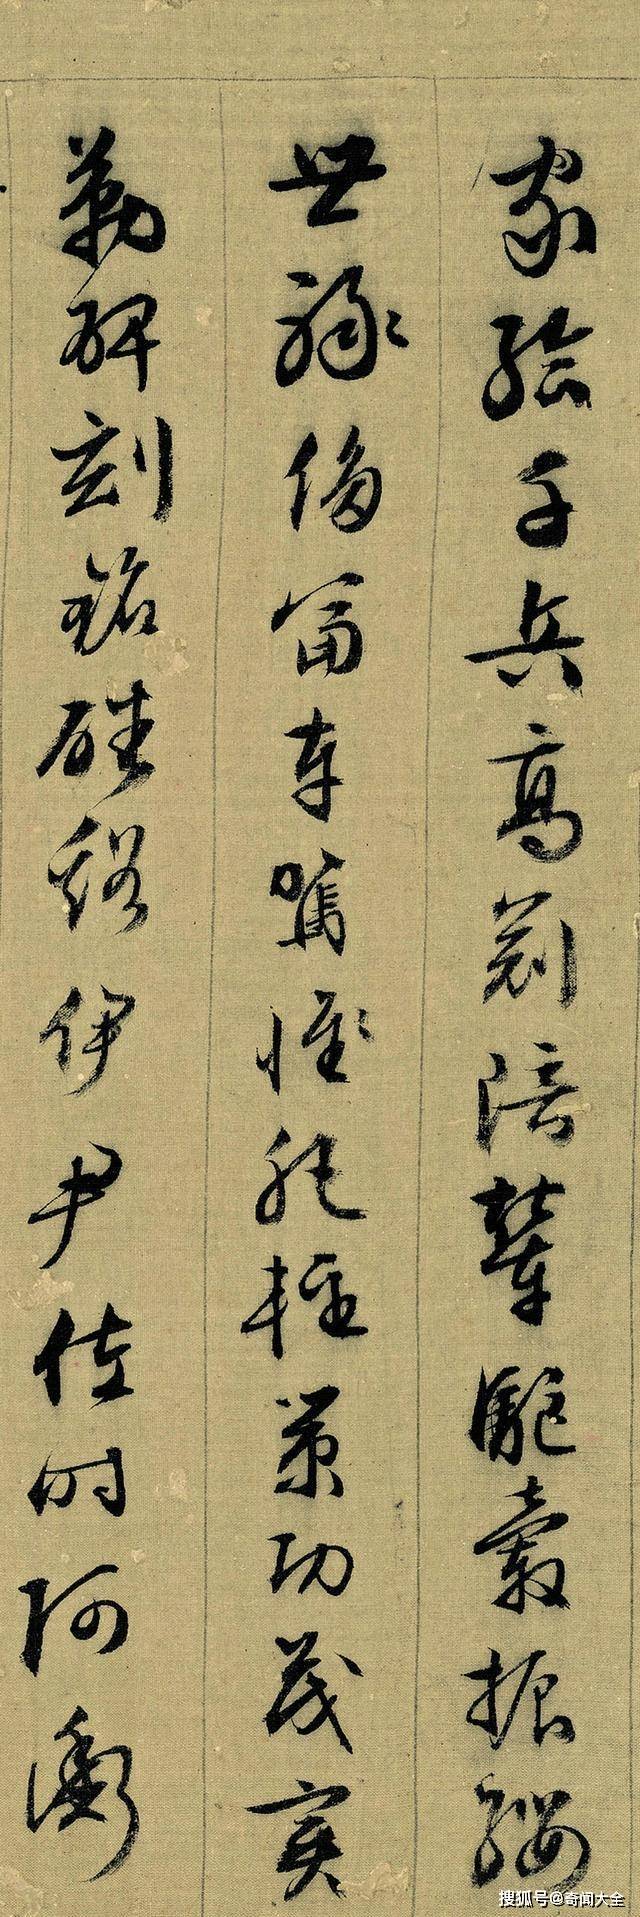 家給千兵高冠陪輦驅轂振纓
世祿侈富車駕惟肥輕策功茂實
勒碑刻銘磻谿伊尹佐時阿衡
搜狐号@奇闻大全